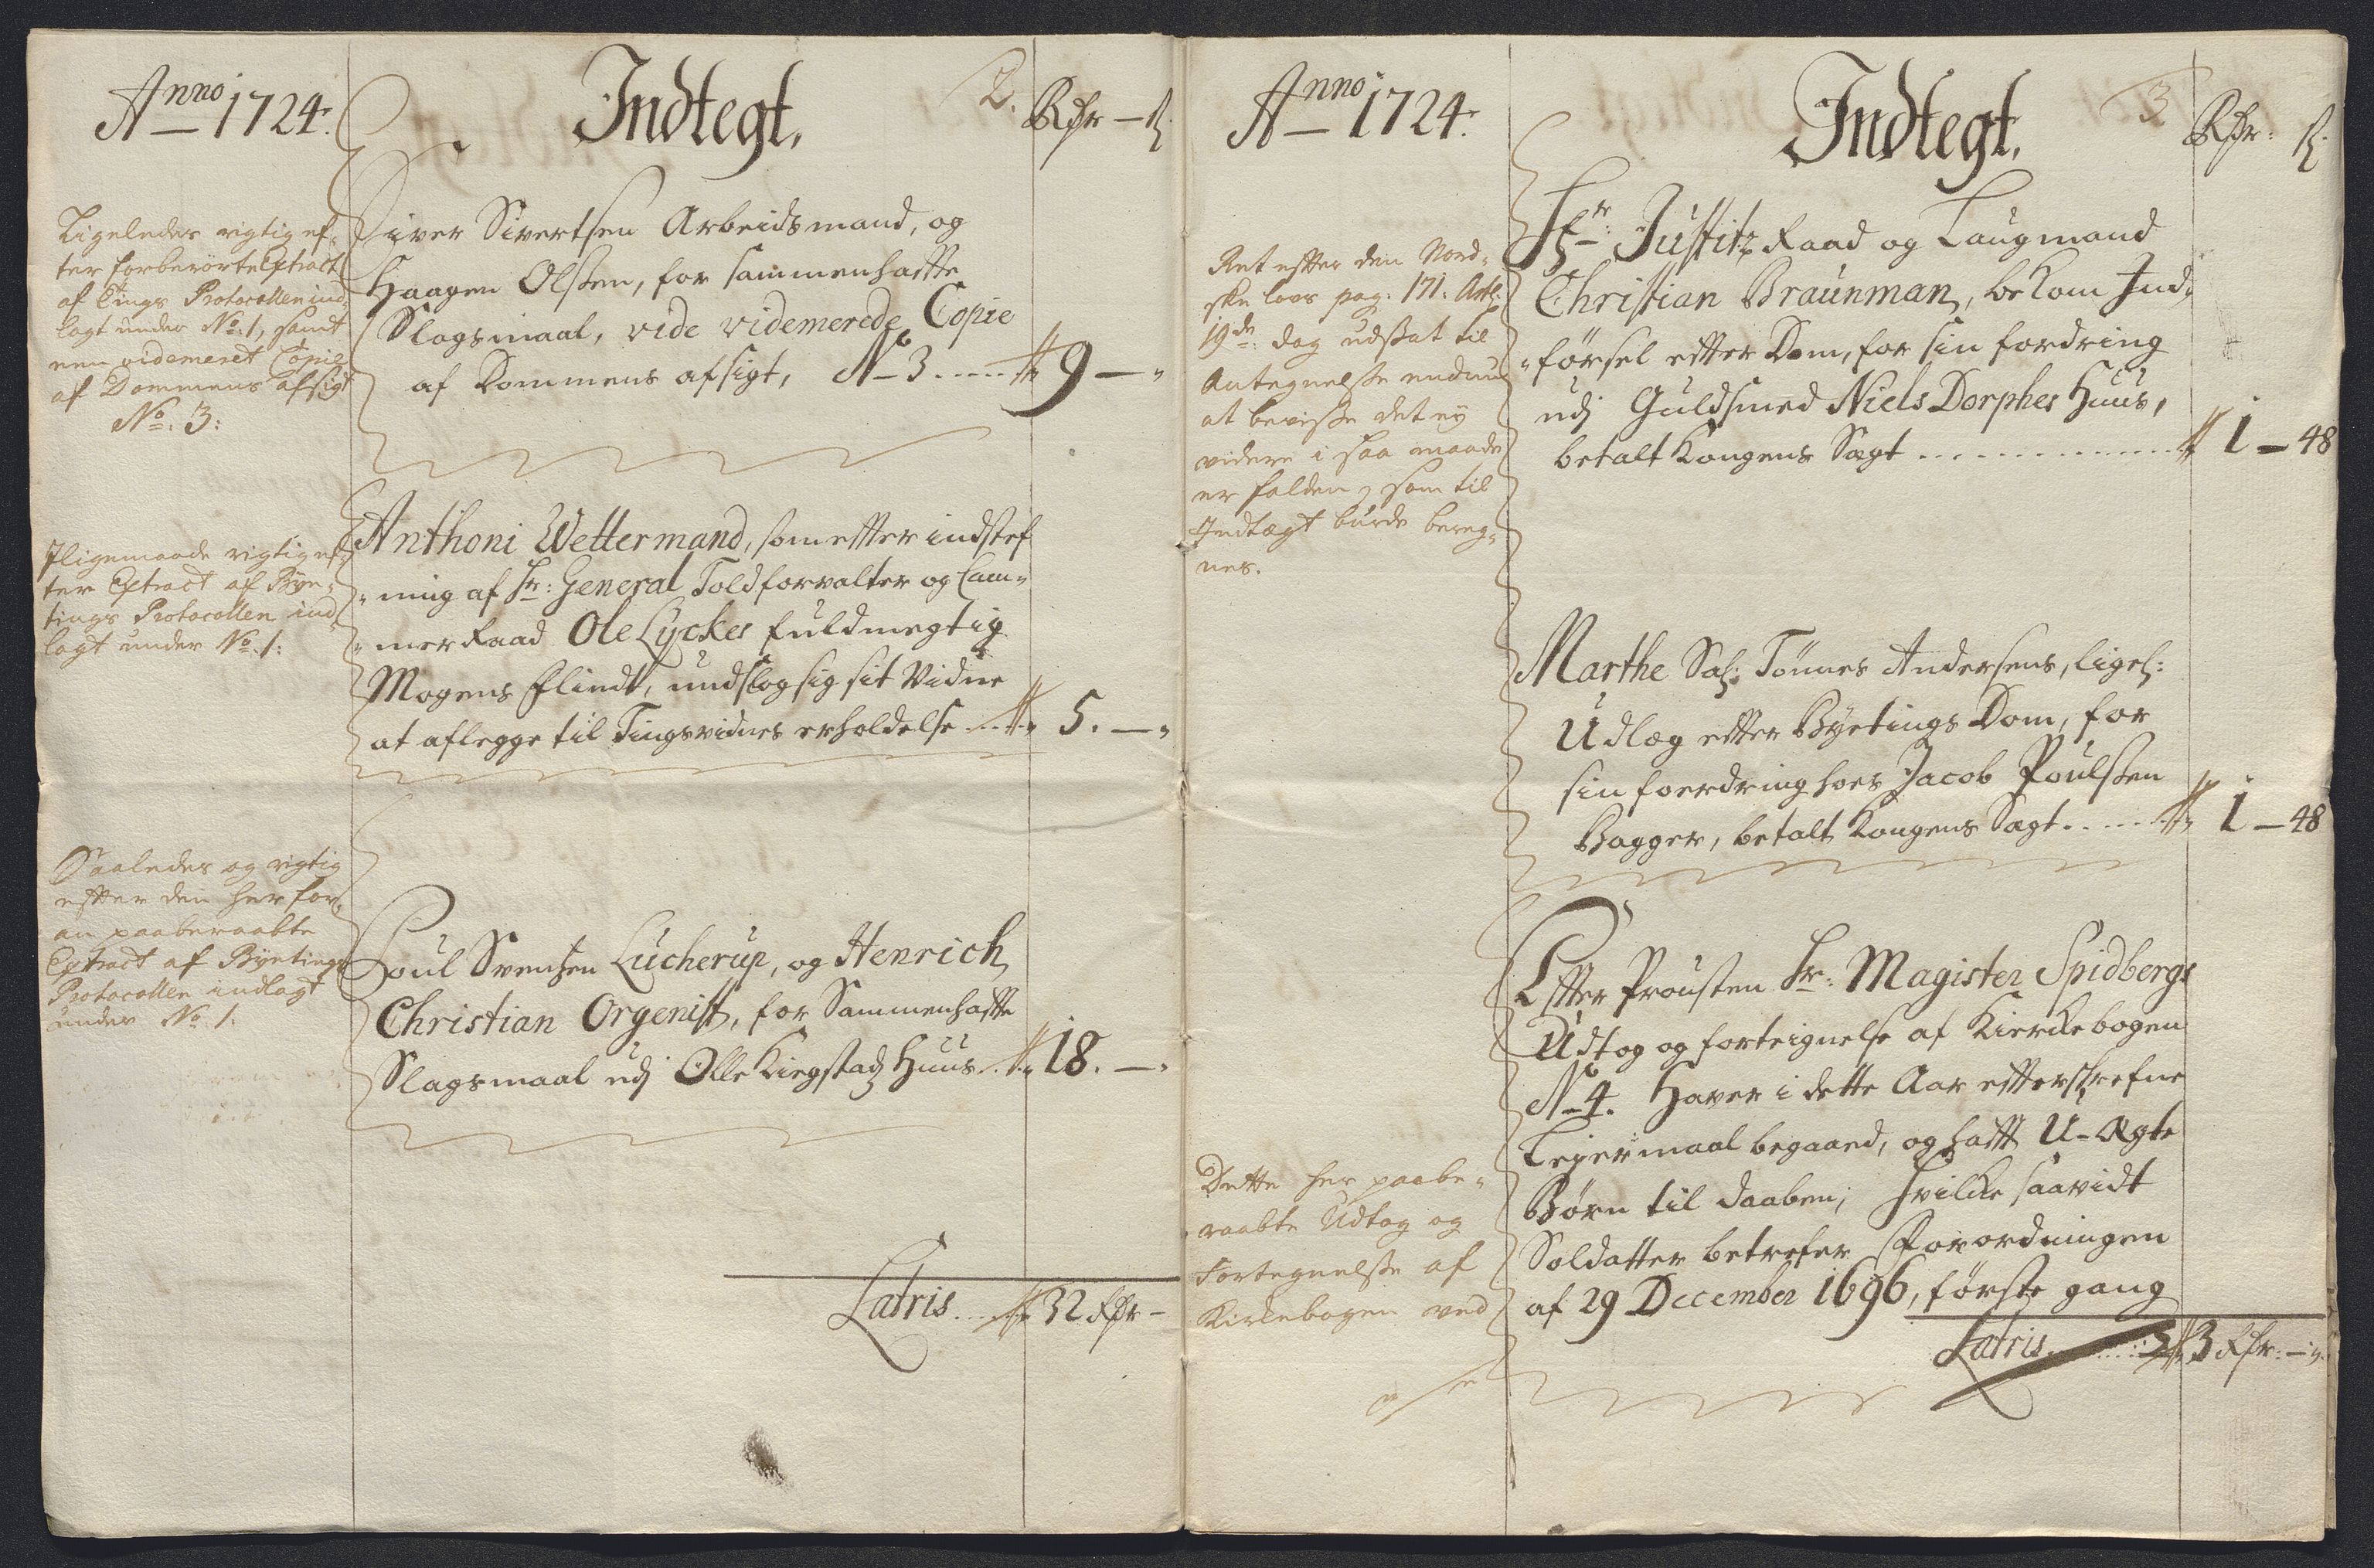 Anno 1724.
Indtegt.
2.
Rdr – ß.
Ligeledes rigtig ef-
ter forberörte Extract
af Tings Protocollen ind-
lagt under No. 1, samt
een videmeret Copie
af Dommens afsigt
No. 3:
Siver Sivertsen Arbeidsmand, og
Haagen Olsen, for sammenhafte
Slagsmaal, vide videmerede Copie
af Dommens afsigt, No 3 ..... 9 –
Iligemaade rigtig ef-
ter Extract af Bye-
tings Protocollen ind-
lagt under No. 1:
Anthoni Wettermand, som effter indstef
„ning af Hr: General Toldforvalter og Cam-
„mer Raad Ole Lyckes fuldmegtig
Mogens Flindt, undslog sig sit Vidne
at aflegge til Tingsvidnes erholdelse .... 5. –
Saaledes og rigtig
effter den her for-
an paaberaabte
Extract af Byetings
Protocollen indlagt
under No. 1.
Poul Svensen Lucherup, og Henrich
Christian Orgenist, for Sammenhaffte
Slagsmaal udj Olle Kiegstads Huus .. 18. –
Latris .... 32 Rdr –
Anno 1724.
Indtegt.
3
Rdr: ß.
Ret effter den Nord-
ske lovs pag: 171. Art:
19de: dog udsat til
Antegnelse endnu
at bevisse det ey
videre i saa maade
er falden, som til
Indtægt burde bereg-
nes.
Hr: Justitz Raad og Laugmand
Christian Braunman, bekom Ind-
„førsel effter Dom, for sin fordring
udj Guldsmed Niels Dorphes Huus,
betalt Kongens Sagt .............. 1 – 48
Marthe Sal: Tönnes Andersens, ligel:
Udlæg effter Byetings Dom, for
sin foerdring hoes Jacob Poulsen
Bagger, betalt Kongens Sagt ..... 1 – 48
Dette her paabe-
raabte Udtog og
Fortegnelse af
Kirkebogen ved
Effter Prousten Hr: Magister Spidbergs
Udtog og forteignelse af Kierckebogen
No 4. Haver i dette Aar effterskrefne
Leyermaal begaaed, og hafft U-Ægte
Børn til Daaben; hvilcke saavidt
Soldatter betrefer Forordningen
af 29 December 1696, første gang
Latris ........ 3 Rdr: –